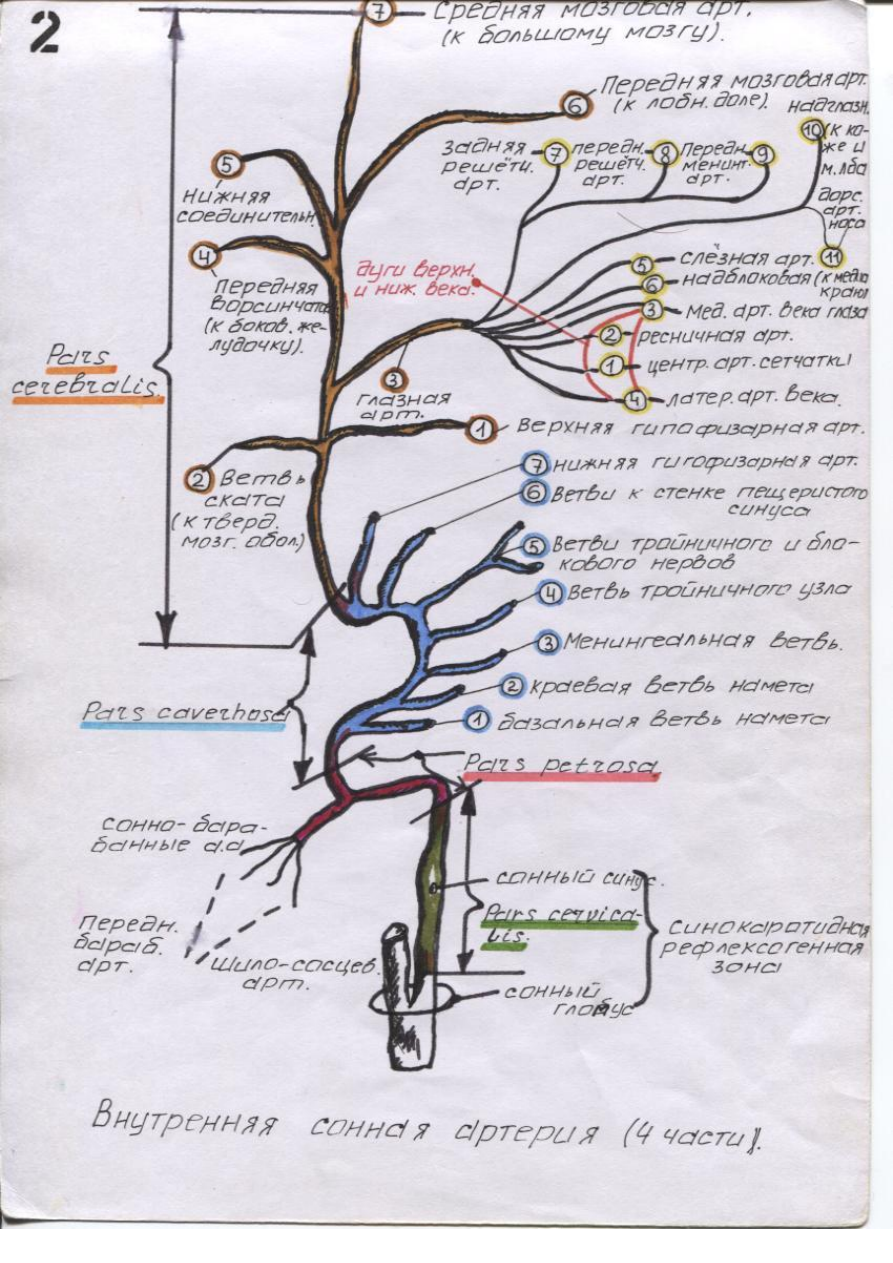 2
7 Средняя мозговая арт.
(к большому мозгу).
6 Передняя мозговая арт.
(к лобн. доле).
надглазн.
10 (к ко-
же и
м. лба
Задняя
решётч.
арт.
7 передн.
решетч.
арт.
8 Передн.
менинг.
арт.
9
дорс.
арт.
носа
11
5
Нижняя
соединительн.
4
Передняя
ворсинчатая
(к боков. же-
лудочку).
дуги верхн.
и ниж. века.
5 слёзная арт.
6 надблоковая (к медиа
краю
3 мед. арт. века глаза
2 ресничная арт.
1 центр. арт. сетчатки
4 латер. арт. века.
3
глазная
арт.
Pars
cerebralis.
1 Верхняя гипофизарная арт.
2 Ветвь
ската
(к тверд.
мозг. обол.)
7 нижняя гигофизарная арт.
6 Ветви к стенке пещеристого
синуса
5 Ветви тройничного и бло-
кового нервов
4 Ветвь тройничного узла
3 Менингеальная ветвь.
2 краевая ветвь намета
1 базальная ветвь намета
Pars caverhosa
Pars petrosa
сонно-бара-
банные а.а
Передн.
бараб.
арт.
Шило-сосцев.
арт.
сонный синус.
Pars cervica-
lis.
сонный
гломус
Синокаротидная
рефлексогенная
зона
Внутренняя сонная артерия (4 части).